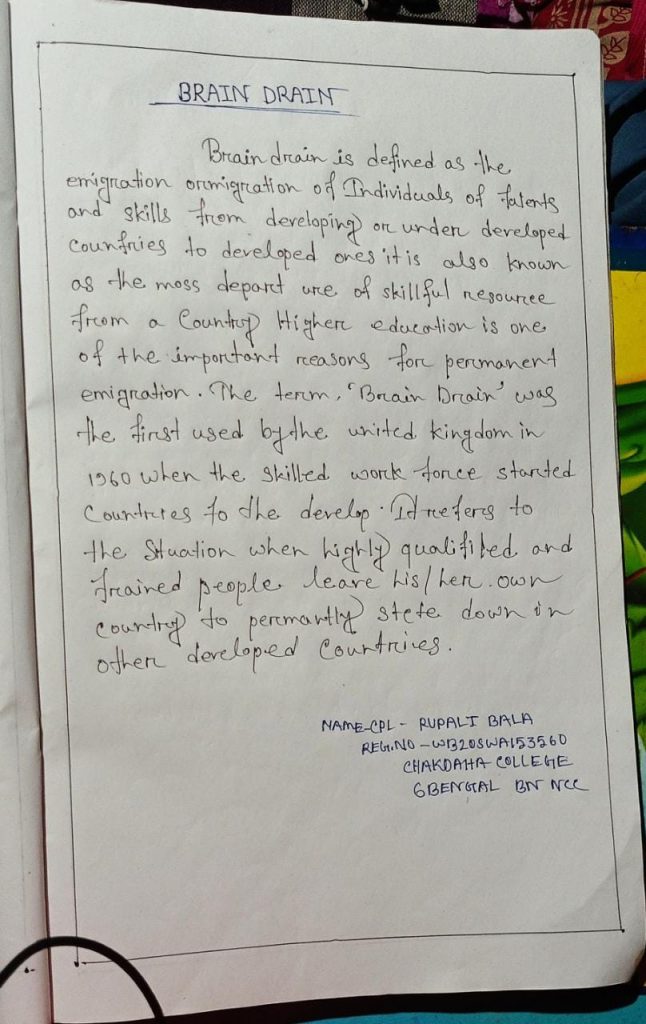 BRAIN DRAIN
Brain drain is defined as the
emigration or migration of Individuals of talents
and skills from developing or under developed
countries to developed ones it is also known
as the moss depart ure of skillful resource
from a Country Higher education is one
of the important reasons for permanent
emigration. The term, 'Brain Drain' was
the first used by the united kingdom in
1960 when the skilled work force started
Countries to the develop. It refers to
the Situation when highly qualifibed and
trained people leave his/her own
country to permantly stete down in
other developed Countries.
NAME-CPL - RUPALI BALA
REG.NO - WB20SWA153560
CHAKDAHA COLLEGE
6BENGAL BN NCC